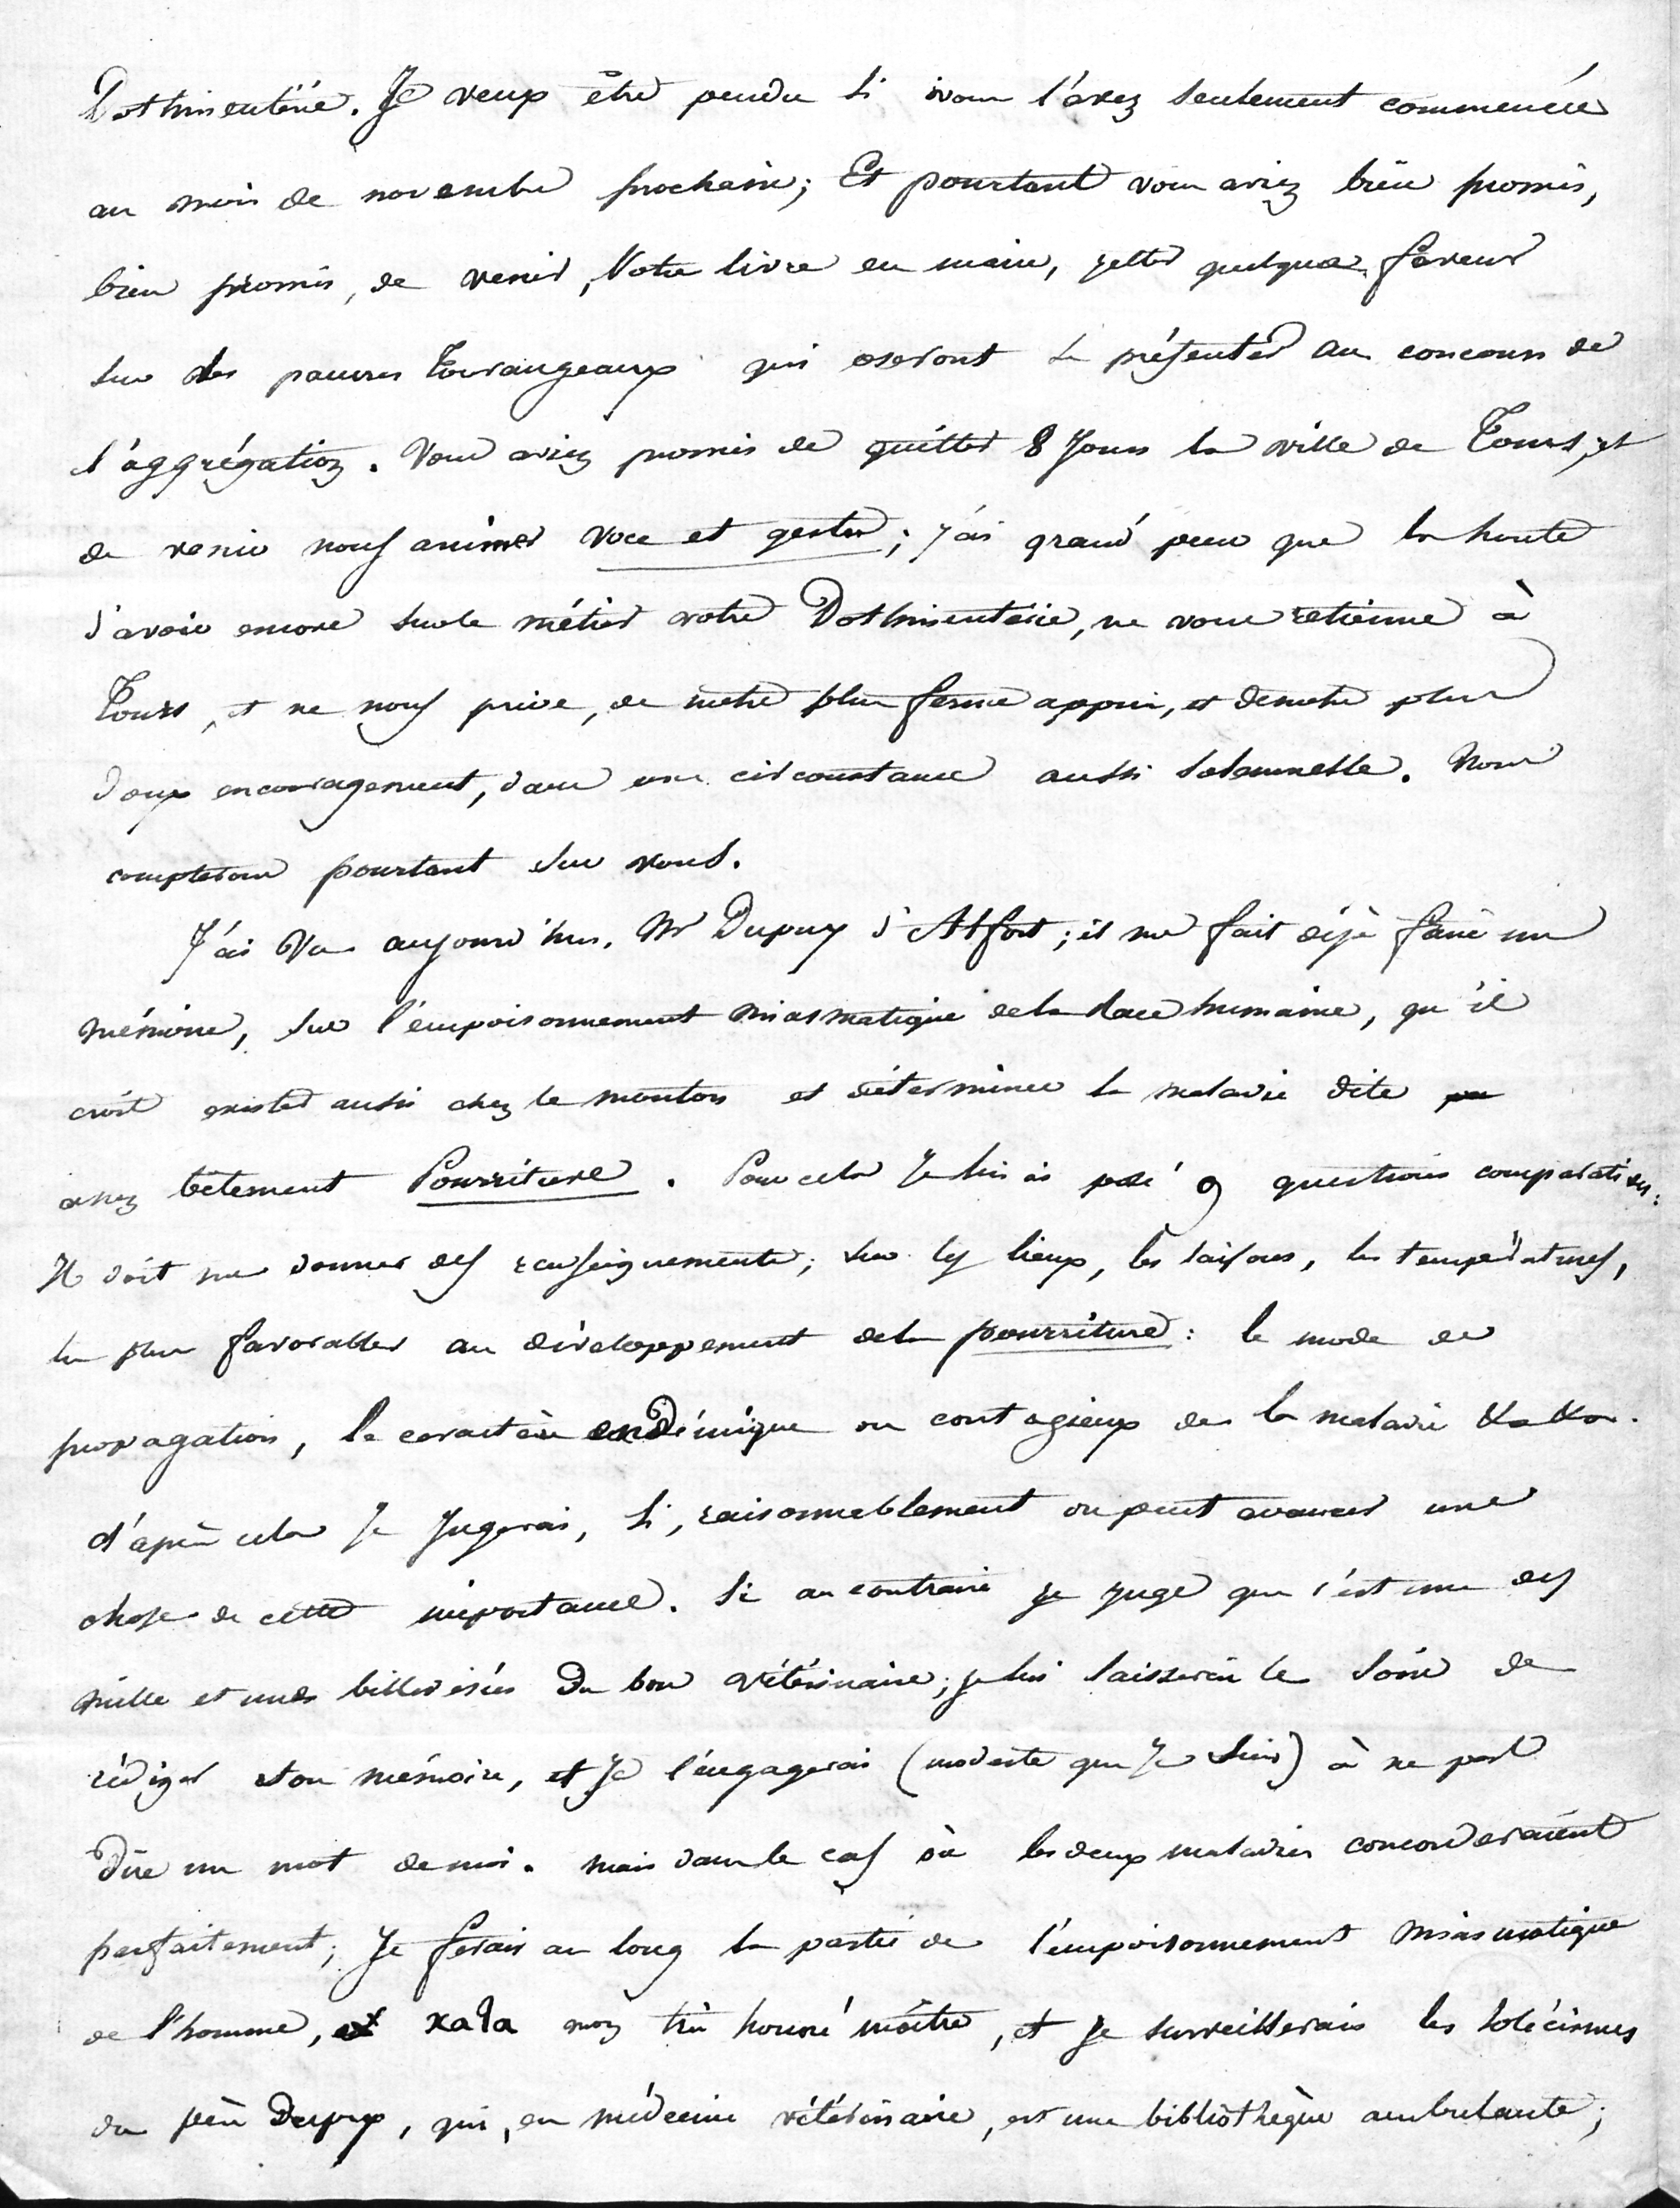 Dothinentérie. Je veux être pendu si vous l'avez seulement commencée
au mois de novembre prochain; Et pourtant vous aviez bien promis,
bien promis, de venir, Votre livre en main, jetter quelque faveur
sur les pauvres Tourangeaux qui oseront se présenter au concours de
l'aggrégation. Vous aviez promis de quitter 8 Jours la ville de Tours, et
de venir nous animer voce et gestu; j'ai grand peur que la honte
d'avoir encore sur le métier votre Dothinentérie, ne vous retienne à
Tours, et ne nous prive, de notre plus ferme appui, et de notre plus
doux encouragement, dans une circonstance aussi solemnelle. Nous
compterons pourtant sur vous.
J'ai Vu aujourd'hui. Mr Dupuy d'Alfort; il me fait déjà faire un
mémoire, sur l'empoisonnement miasmatique de la Race humaine, qu'il
croit exister aussi chez le mouton et déterminer la maladie dite
assez bêtement Pourriture. Pour cela Je lui ai posé 9 questions comparatives:
Il doit me donner des renseignements; sur les lieux, les saisons, les températures,
les plus favorables au développement de la pourriture: le mode de
propagation, le caractère endémique ou contagieux de la maladie &a &a.
d'après cela Je Jugerai, si, raisonnablement on peut avancer une
chose de cette importance. Si au contraire je juge que c'est une des
mille et unes billevesées du bon vétérinaire; je lui laisserai le soin de
rédiger son mémoire, et Je l'engagerai (modeste que Je suis) à ne pas
dire un mot de moi. mais dans le cas où les deux maladies concorderaient
parfaitement; Je ferais au long la partie de l'empoisonnement miasmatique
de l'homme, et κατα mon très honoré maître, et Je surveillerais les solécismes
du père Dupuy, qui, en médecine vétérinaire, est une bibliothèque ambulante;